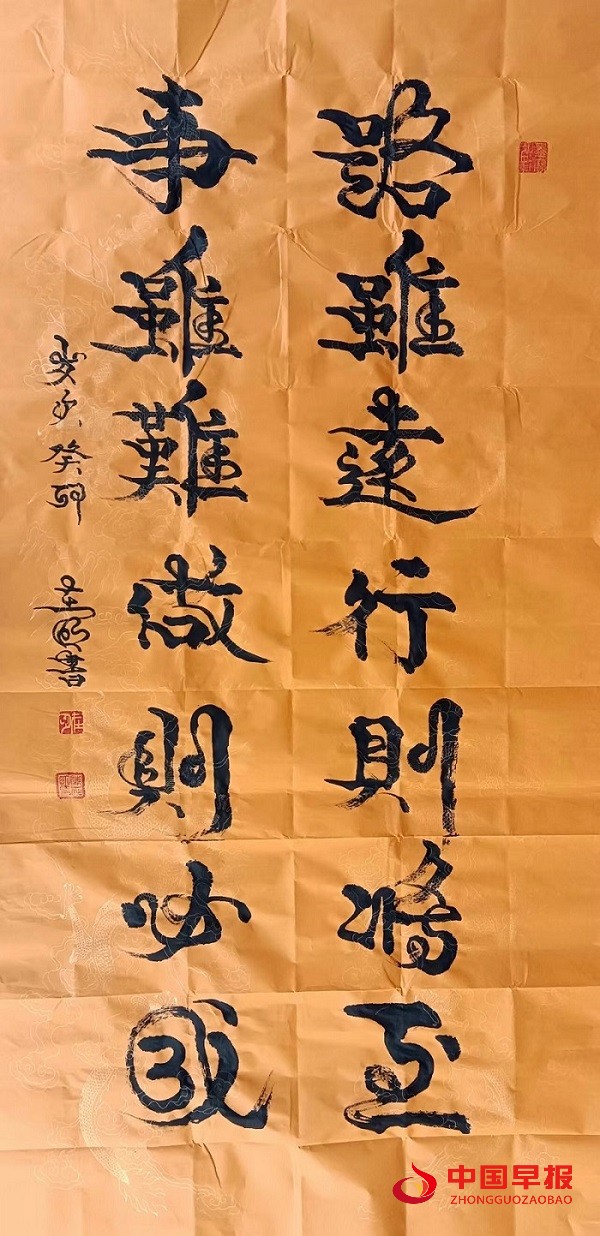 路雖遠行則將至
事雖難做則必成
歲次癸卯
書
中国早报
ZHONGGUOZAOBAO